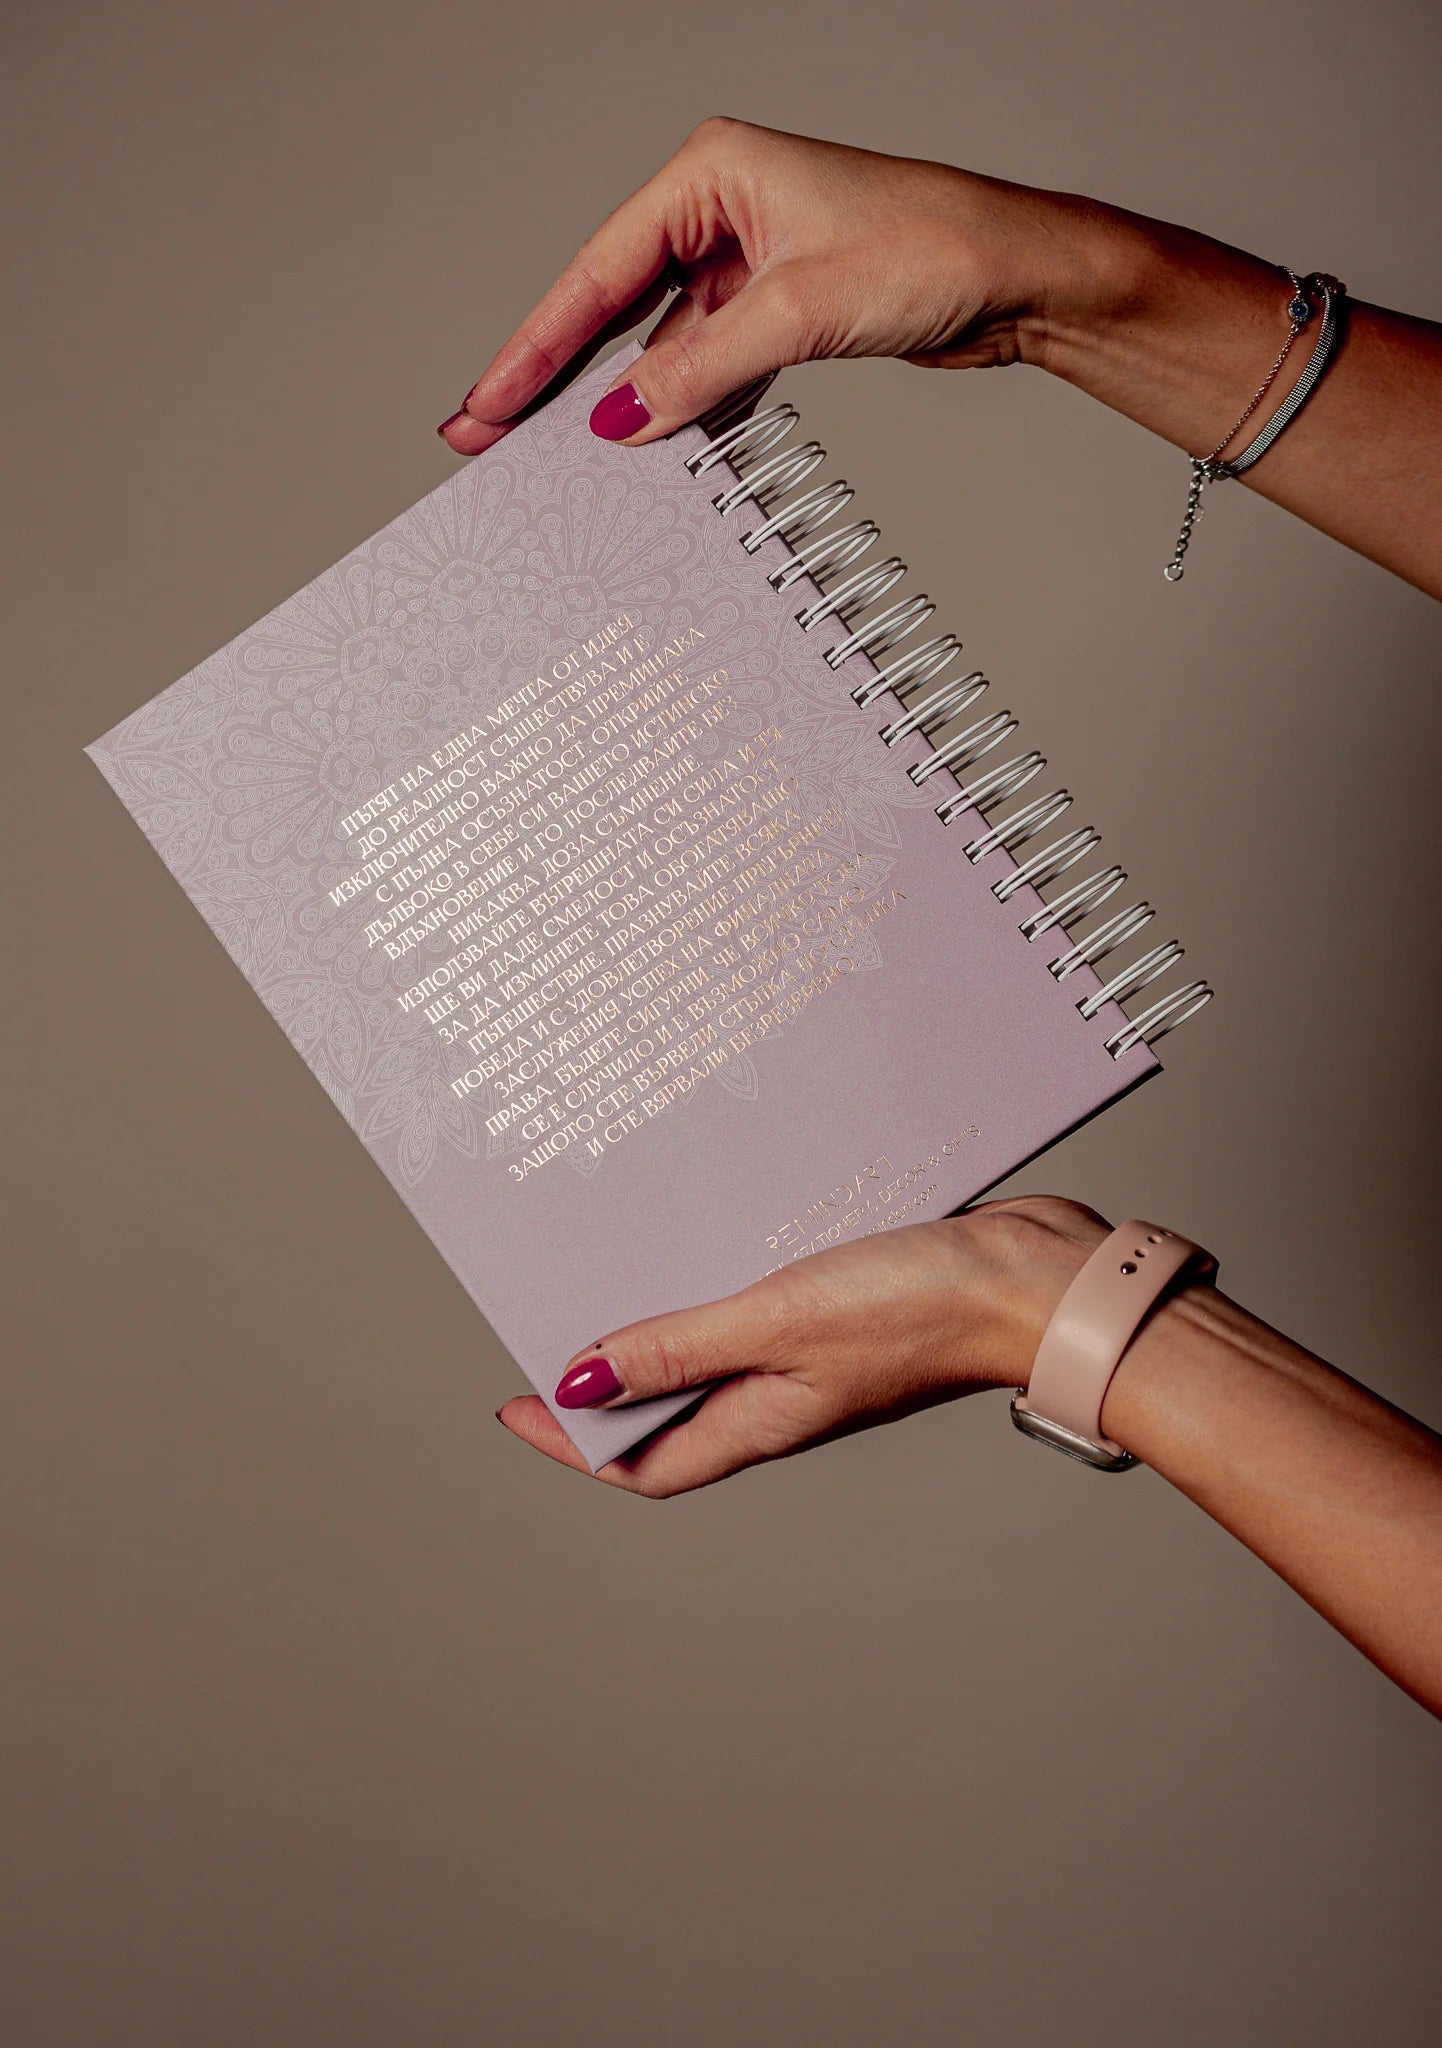 ПЪТЯТ НА ЕДНА МЕЧТА ОТ ИДЕЯ
ДО РЕАЛНОСТ СЪЩЕСТВУВА И Е
ИЗКЛЮЧИТЕЛНО ВАЖНО ДА ПРЕМИНАВА
С ПЪЛНА ОСЪЗНАТОСТ. ОТКРИЙТЕ
ДЪЛБОКО В СЕБЕ СИ ВАШЕТО ИСТИНСКО
ВДЪХНОВЕНИЕ И ГО ПОСЛЕДВАЙТЕ БЕЗ
НИКАКВА ДОЗА СЪМНЕНИЕ.
ИЗПОЛЗВАЙТЕ ВЪТРЕШНАТА СИ СИЛА И ТЯ
ЩЕ ВИ ДАДЕ СМЕЛОСТ И ОСЪЗНАТОСТ
ЗА ДА ИЗМИНЕТЕ ТОВА ОБОГАТЯВАЩО
ПЪТЕШЕСТВИЕ. ПРАЗНУВАЙТЕ ВСЯКА
ПОБЕДА И С УДОВЛЕТВОРЕНИЕ ПРЕГЪРНЕТЕ
ЗАСЛУЖЕНИЯ УСПЕХ НА ФИНАЛНАТА
ПРАВА. БЪДЕТЕ СИГУРНИ, ЧЕ ВСИЧКО ТОВА
СЕ Е СЛУЧИЛО И Е ВЪЗМОЖНО САМО,
ЗАЩОТО СТЕ ВЪРВЕЛИ СТЪПКА ПО СТЪПКА
И СТЕ ВЯРВАЛИ БЕЗРЕЗЕРВНО.
REMINDART
STATIONERY, DECOR & GIFTS